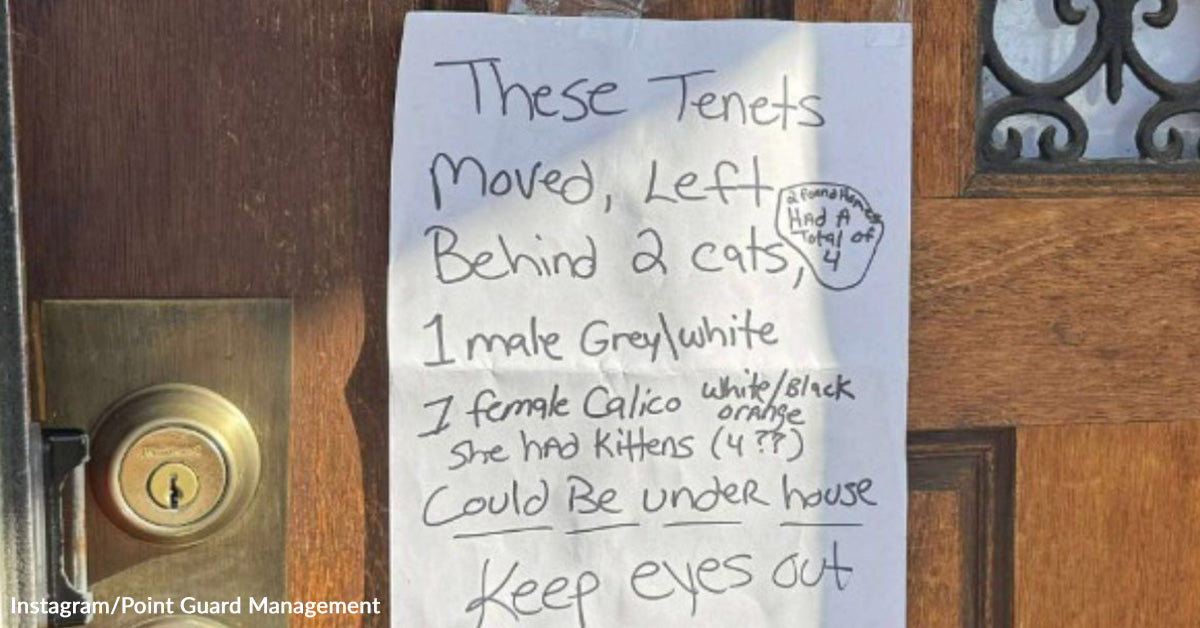 These Tenets
Moved, Left
Behind 2 cats,
2 found Homes
HAd A
Total of
4
1 male Grey\white
1 female Calico white/Black
orange
She had kittens (4??)
Could Be under house
Keep eyes out
Instagram/Point Guard Management